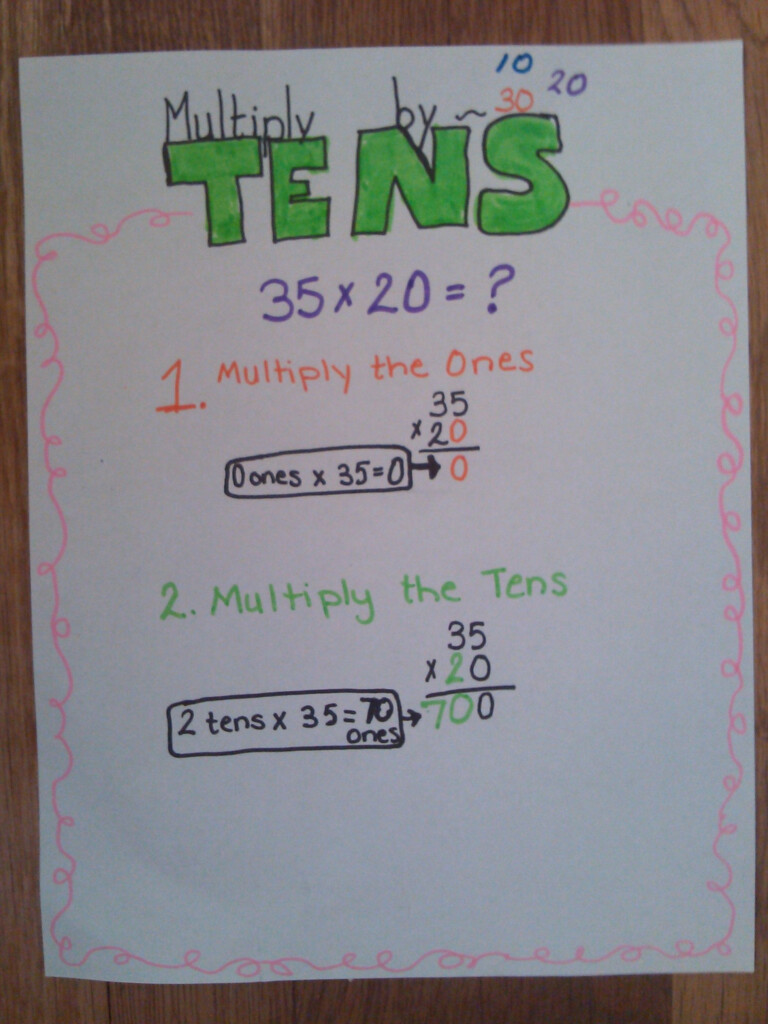 10 20
Multiply by ~ 30
TENS
35 x 20 = ?
1. Multiply the Ones
35
x 20
0 ones x 35 = 0 → 0
2. Multiply the Tens
35
x 20
2 tens x 35 = 70 ones → 700